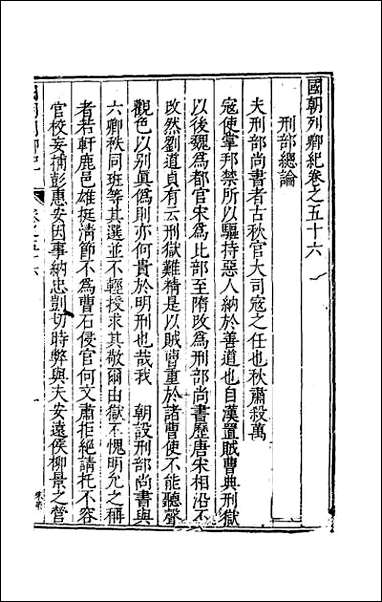 國朝列卿紀卷之五十六
刑部總論
夫刑部尚書者古秋官大司寇之任也秋肅殺萬
寇使掌邦禁所以驅恃惡人納於善道也自漢置賊曹典刑獄
以後魏為都官宋為比部至隋改為刑部尚書歷唐宋相沿不
改然劉道貞有云刑獄難精是以賊曹重於諸曹使不能聽聲
觀色以別真偽則亦何貴於明刑也哉我 朝設刑部尚書與
六卿秩同班等其選並不輕授求其敬爾由獄不愧明允之稱
者若軒鹿邑雄挺清節不為曹石侵官何文肅拒絕請托不容
官校妄捕彭惠安因事納忠剴切時弊與夫安遠侯柳景之營